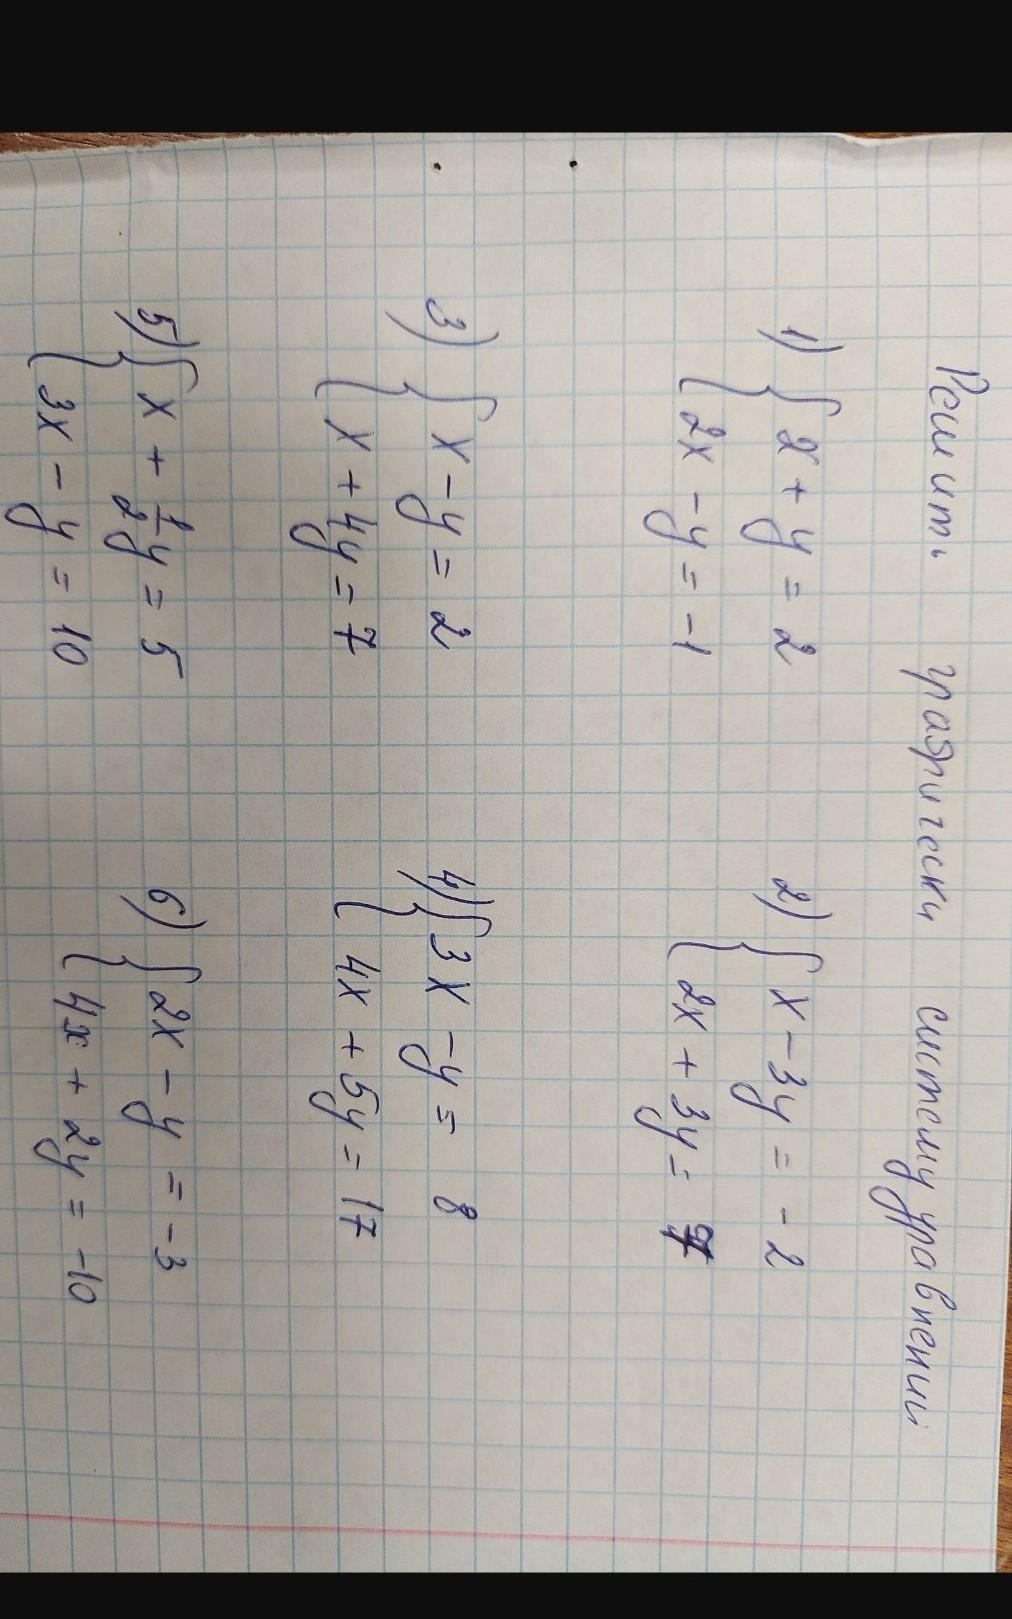 Решить графически систему уравнений
1) { x + y = 2
2x - y = -1
2) { x - 3y = -2
2x + 3y =
3) { x - y = 2
x + 4y = 7
4) { 3x - y = 8
4x + 5y = 17
5) { x + 1/2 y = 5
3x - y = 10
6) { 2x - y = -3
4x + 2y = -10